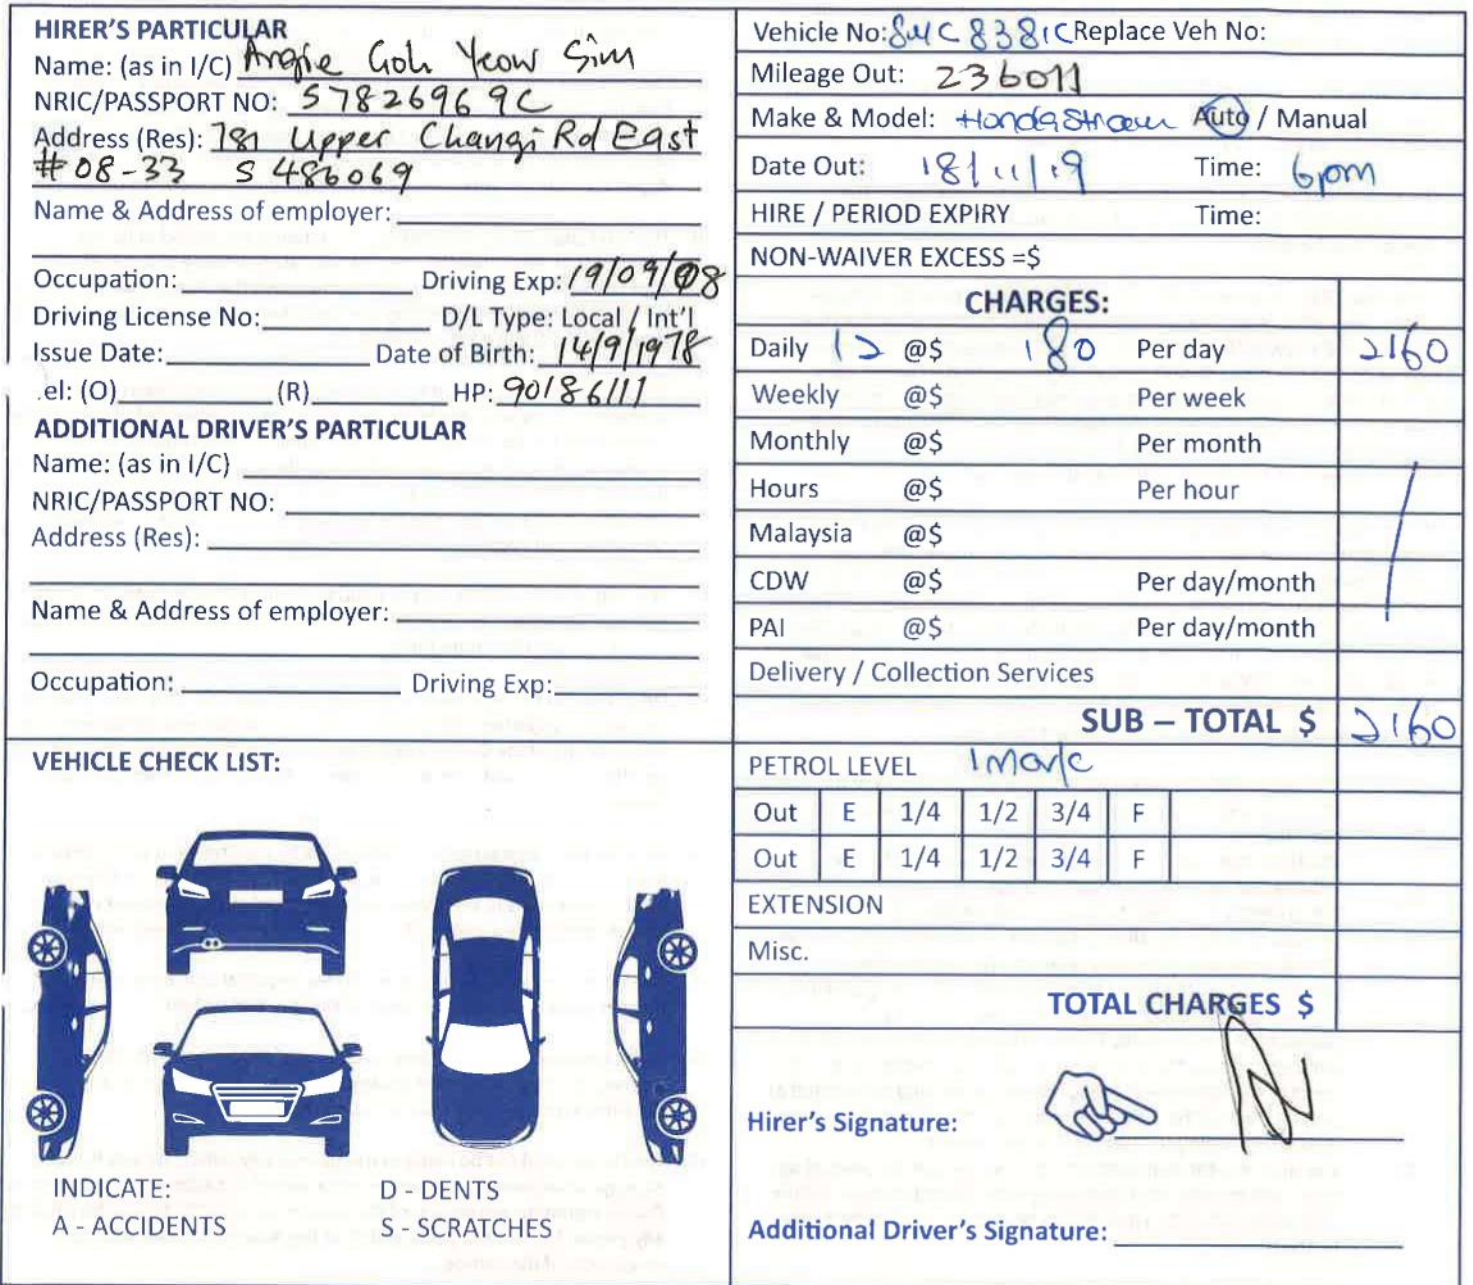 HIRER'S PARTICULAR
Name: (as in I/C) Angie Goh Yeow Sim
NRIC/PASSPORT NO: S7826969C
Address (Res): 781 Upper Changi Rd East
#08-33 S 486069
Name & Address of employer:
Occupation: Driving Exp: 19/09/08
Driving License No: D/L Type: Local / Int'l
Issue Date: Date of Birth: 14/9/1978
.el: (O) (R) HP: 90186111
ADDITIONAL DRIVER'S PARTICULAR
Name: (as in I/C)
NRIC/PASSPORT NO:
Address (Res):
Name & Address of employer:
Occupation: Driving Exp:
VEHICLE CHECK LIST:
INDICATE: D - DENTS
A - ACCIDENTS S - SCRATCHES
Vehicle No: SMC8381C Replace Veh No:
Mileage Out: 236011
Make & Model: Honda Stream Auto / Manual
Date Out: 18/11/19 Time: 6pm
HIRE / PERIOD EXPIRY Time:
NON-WAIVER EXCESS =$
CHARGES:
Daily 12 @$ 180 Per day 2160
Weekly @$ Per week
Monthly @$ Per month
Hours @$ Per hour
Malaysia @$
CDW @$ Per day/month
PAI @$ Per day/month
Delivery / Collection Services
SUB – TOTAL $ 2160
PETROL LEVEL 1 mark
Out E 1/4 1/2 3/4 F
Out E 1/4 1/2 3/4 F
EXTENSION
Misc.
TOTAL CHARGES $
Hirer's Signature:
Additional Driver's Signature: